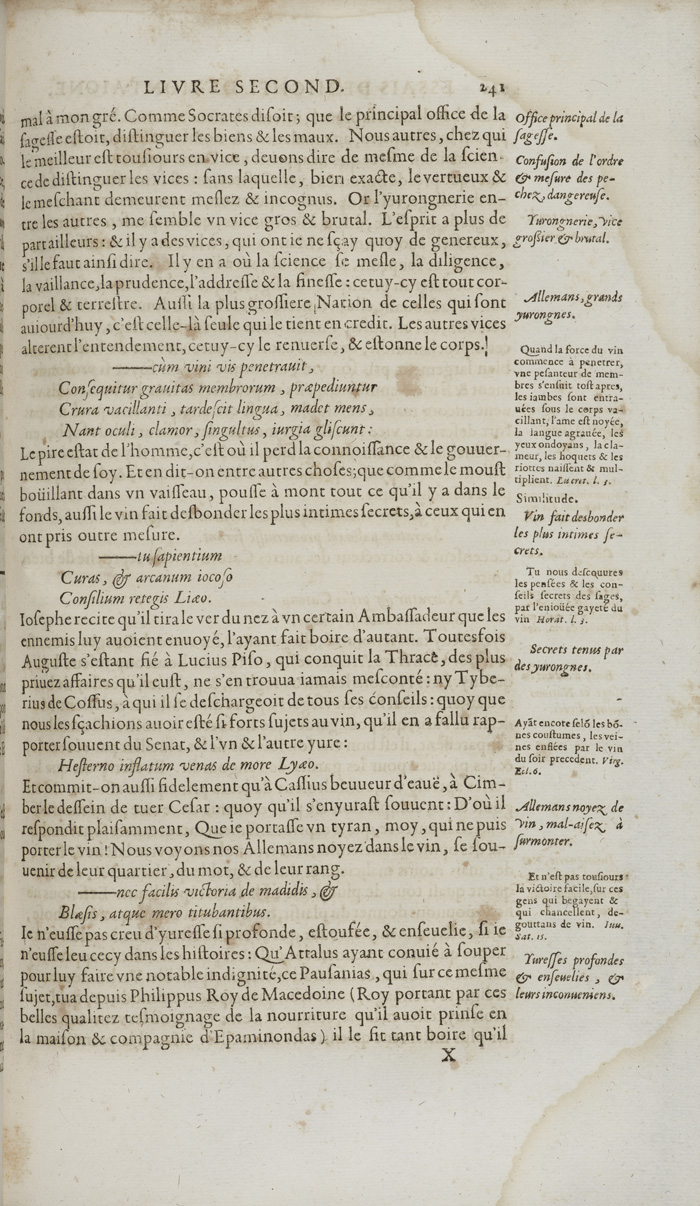 LIVRE SECOND. 241
mal à mon gré. Comme Socrates disoit; que le principal office de la
sagesse estoit, distinguer les biens & les maux. Nous autres, chez qui
le meilleur est tousiours en vice, deuons dire de mesme de la scien-
ce de distinguer les vices : sans laquelle, bien exacte, le vertueux &
le meschant demeurent meslez & incognus. Or l'yurongnerie en-
tre les autres, me semble vn vice gros & brutal. L'esprit a plus de
part ailleurs : & il y a des vices, qui ont ie ne sçay quoy de genereux,
s'il le faut ainsi dire. Il y en a où la science se mesle, la diligence,
la vaillance, la prudence, l'addresse & la finesse : cetuy-cy est tout cor-
porel & terrestre. Aussi la plus grossiere Nation de celles qui sont
auiourd'huy, c'est celle-là seule qui le tient en credit. Les autres vices
alterent l'entendement, cetuy-cy le renuerse, & estonne le corps.
——cùm vini vis penetrauit,
Consequitur grauitas membrorum, præpediuntur
Crura vacillanti, tardescit lingua, madet mens,
Nant oculi, clamor, singultus, iurgia gliscunt :
Le pire estat de l'homme, c'est où il perd la connoissance & le gouuer-
nement de soy. Et en dit-on entre autres choses; que comme le moust
boüillant dans vn vaisseau, pousse à mont tout ce qu'il y a dans le
fonds, aussi le vin fait desbonder les plus intimes secrets, à ceux qui en
ont pris outre mesure.
——tu sapientium
Curas, & arcanum iocoso
Consilium retegis Liæo.
Iosephe recite qu'il tira le ver du nez à vn certain Ambassadeur que les
ennemis luy auoient enuoyé, l'ayant fait boire d'autant. Toutesfois
Auguste s'estant fié à Lucius Piso, qui conquit la Thrace, des plus
priuez affaires qu'il eust, ne s'en trouua iamais mesconté : ny Tybe-
rius de Cossus, à qui il se deschargeoit de tous ses conseils : quoy que
nous les sçachions auoir esté si forts sujets au vin, qu'il en a fallu rap-
porter souuent du Senat, & l'vn & l'autre yure :
Hesterno inflatum venas de more Lyæo.
Et commit-on aussi fidelement qu'à Cassius beuueur d'eauë, à Cim-
ber le dessein de tuer Cesar : quoy qu'il s'enyurast souuent : D'où il
respondit plaisamment, Que ie portasse vn tyran, moy, qui ne puis
porter le vin ! Nous voyons nos Allemans noyez dans le vin, se sou-
uenir de leur quartier, du mot, & de leur rang.
——nec facilis victoria de madidis, &
Blæsis, atque mero titubantibus.
Ie n'eusse pas creu d'yuresse si profonde, estoufée, & enseuelie, si ie
n'eusse leu cecy dans les histoires : Qu'Attalus ayant conuié à souper
pour luy faire vne notable indignité, ce Pausanias, qui sur ce mesme
sujet, tua depuis Philippus Roy de Macedoine (Roy portant par ces
belles qualitez tesmoignage de la nourriture qu'il auoit prinse en
la maison & compagnie d'Epaminondas) il le fit tant boire qu'il
X
Office principal de la
sagesse.
Confusion de l'ordre
& mesure des pe-
chez, dangereuse.
Yurongnerie, vice
grossier & brutal.
Allemans, grands
yurongnes.
Quand la force du vin
commence à penetrer,
vne pesanteur de mem-
bres s'ensuit tost apres,
les iambes sont entra-
uées sous le corps va-
cillant, l'ame est noyée,
la langue agrauée, les
yeux ondoyans, la cla-
meur, les hoquets & les
riottes naissent & mul-
tiplient. Lucret. l. 3.
Similitude.
Vin fait desbonder
les plus intimes se-
crets.
Tu nous descquures
les pensées & les con-
seils secrets des sages,
par l'enioüée gayeté du
vin Horat. l. 3.
Secrets tenus par
des yurongnes.
Ayãt encore selõ les bõ-
nes coustumes, les vei-
nes enflées par le vin
du soir precedent. Virg.
Ecl. 6.
Allemans noyez de
vin, mal-aisez à
surmonter.
Et n'est pas tousiours
la victoire facile, sur ces
gens qui begayent &
qui chancellent, de-
gouttans de vin. Iuu.
Sat. 15.
Yuresses profondes
& enseuelies, &
leurs inconueniens.